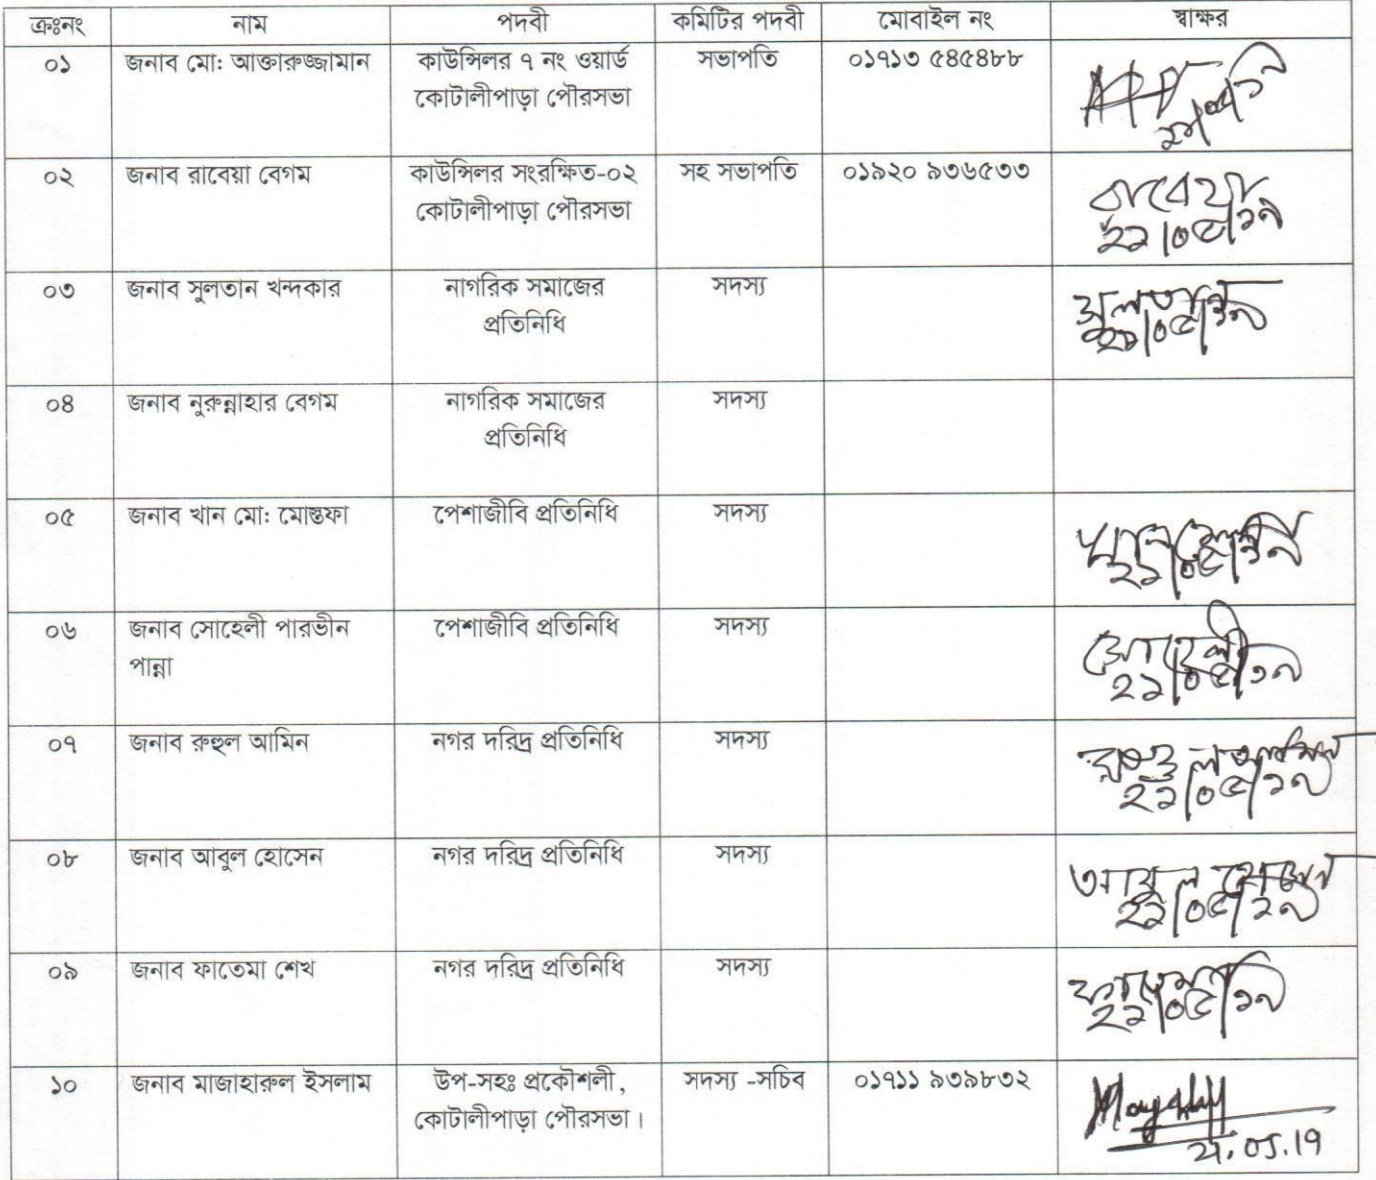 ক্রঃনং নাম পদবী কমিটির পদবী মোবাইল নং স্বাক্ষর
০১ জনাব মো: আক্তারুজ্জামান কাউন্সিলর ৭ নং ওয়ার্ড সভাপতি ০১৭১৩ ৫৪৫৪৮৮
কোটালীপাড়া পৌরসভা
০২ জনাব রাবেয়া বেগম কাউন্সিলর সংরক্ষিত-০২ সহ সভাপতি ০১৯২০ ৯৩৬৫৩৩ রাবেয়া
কোটালীপাড়া পৌরসভা ২১/০৫/১৯
০৩ জনাব সুলতান খন্দকার নাগরিক সমাজের সদস্য সুলতান
প্রতিনিধি ২১/০৫/১৯
০৪ জনাব নুরুন্নাহার বেগম নাগরিক সমাজের সদস্য
প্রতিনিধি
০৫ জনাব খান মো: মোস্তফা পেশাজীবি প্রতিনিধি সদস্য
২১/০৫/১৯
০৬ জনাব সোহেলী পারভীন পেশাজীবি প্রতিনিধি সদস্য সোহেলী
পান্না ২১/০৫/১৯
০৭ জনাব রুহুল আমিন নগর দরিদ্র প্রতিনিধি সদস্য রুহুল আমিন
২১/০৫/১৯
০৮ জনাব আবুল হোসেন নগর দরিদ্র প্রতিনিধি সদস্য আবুল হোসেন
২১/০৫/১৯
০৯ জনাব ফাতেমা শেখ নগর দরিদ্র প্রতিনিধি সদস্য ফাতেমা
২১/০৫/১৯
১০ জনাব মাজাহারুল ইসলাম উপ-সহঃ প্রকৌশলী, সদস্য -সচিব ০১৭১১ ৯৩৯৮৩২
কোটালীপাড়া পৌরসভা। 21.05.19